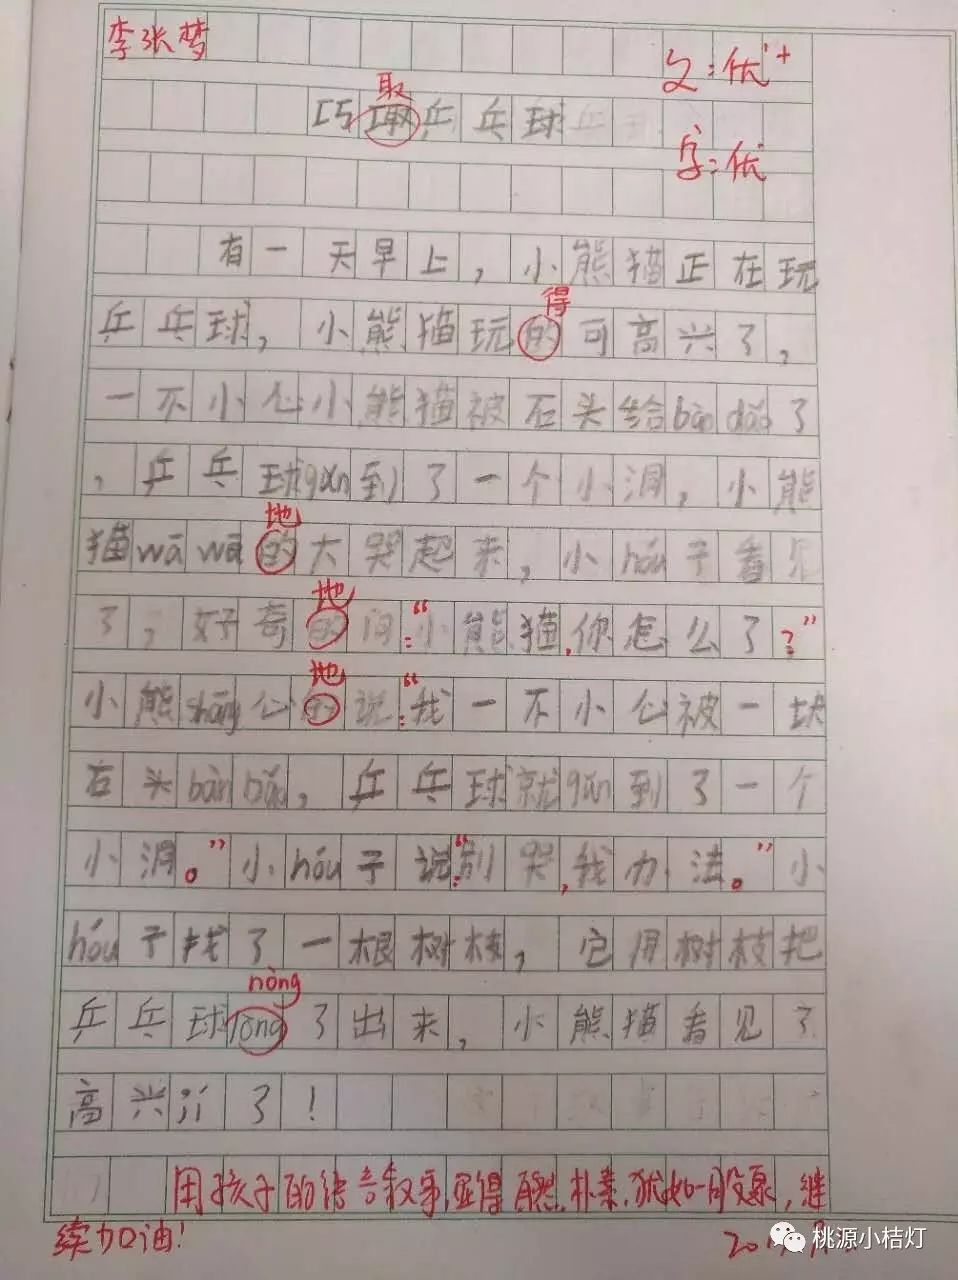 李张梦
文：优+
取
巧取乒乓球
字：优
有一天早上，小熊猫正在玩
得
乒乓球，小熊猫玩的可高兴了，
一不小心小熊猫被石头给bàn dǎo了
，乒乓球gǔn到了一个小洞，小熊
地
猫wā wā的大哭起来，小hóu子看见
地
了，好奇的问：“小熊猫，你怎么了？”
地
小熊shāng心的说：“我一不小心被一块
石头bàn dǎo，乒乓球就gǔn到了一个
小洞。”小hóu子说：“别哭，我办法。”小
hóu子找了一根树枝，它用树枝把
nòng
乒乓球lòng了出来，小熊猫看见了
高兴jí了！
用孩子的语言叙事，显得自然、朴素，犹如一股泉，继
续加油！
桃源小桔灯